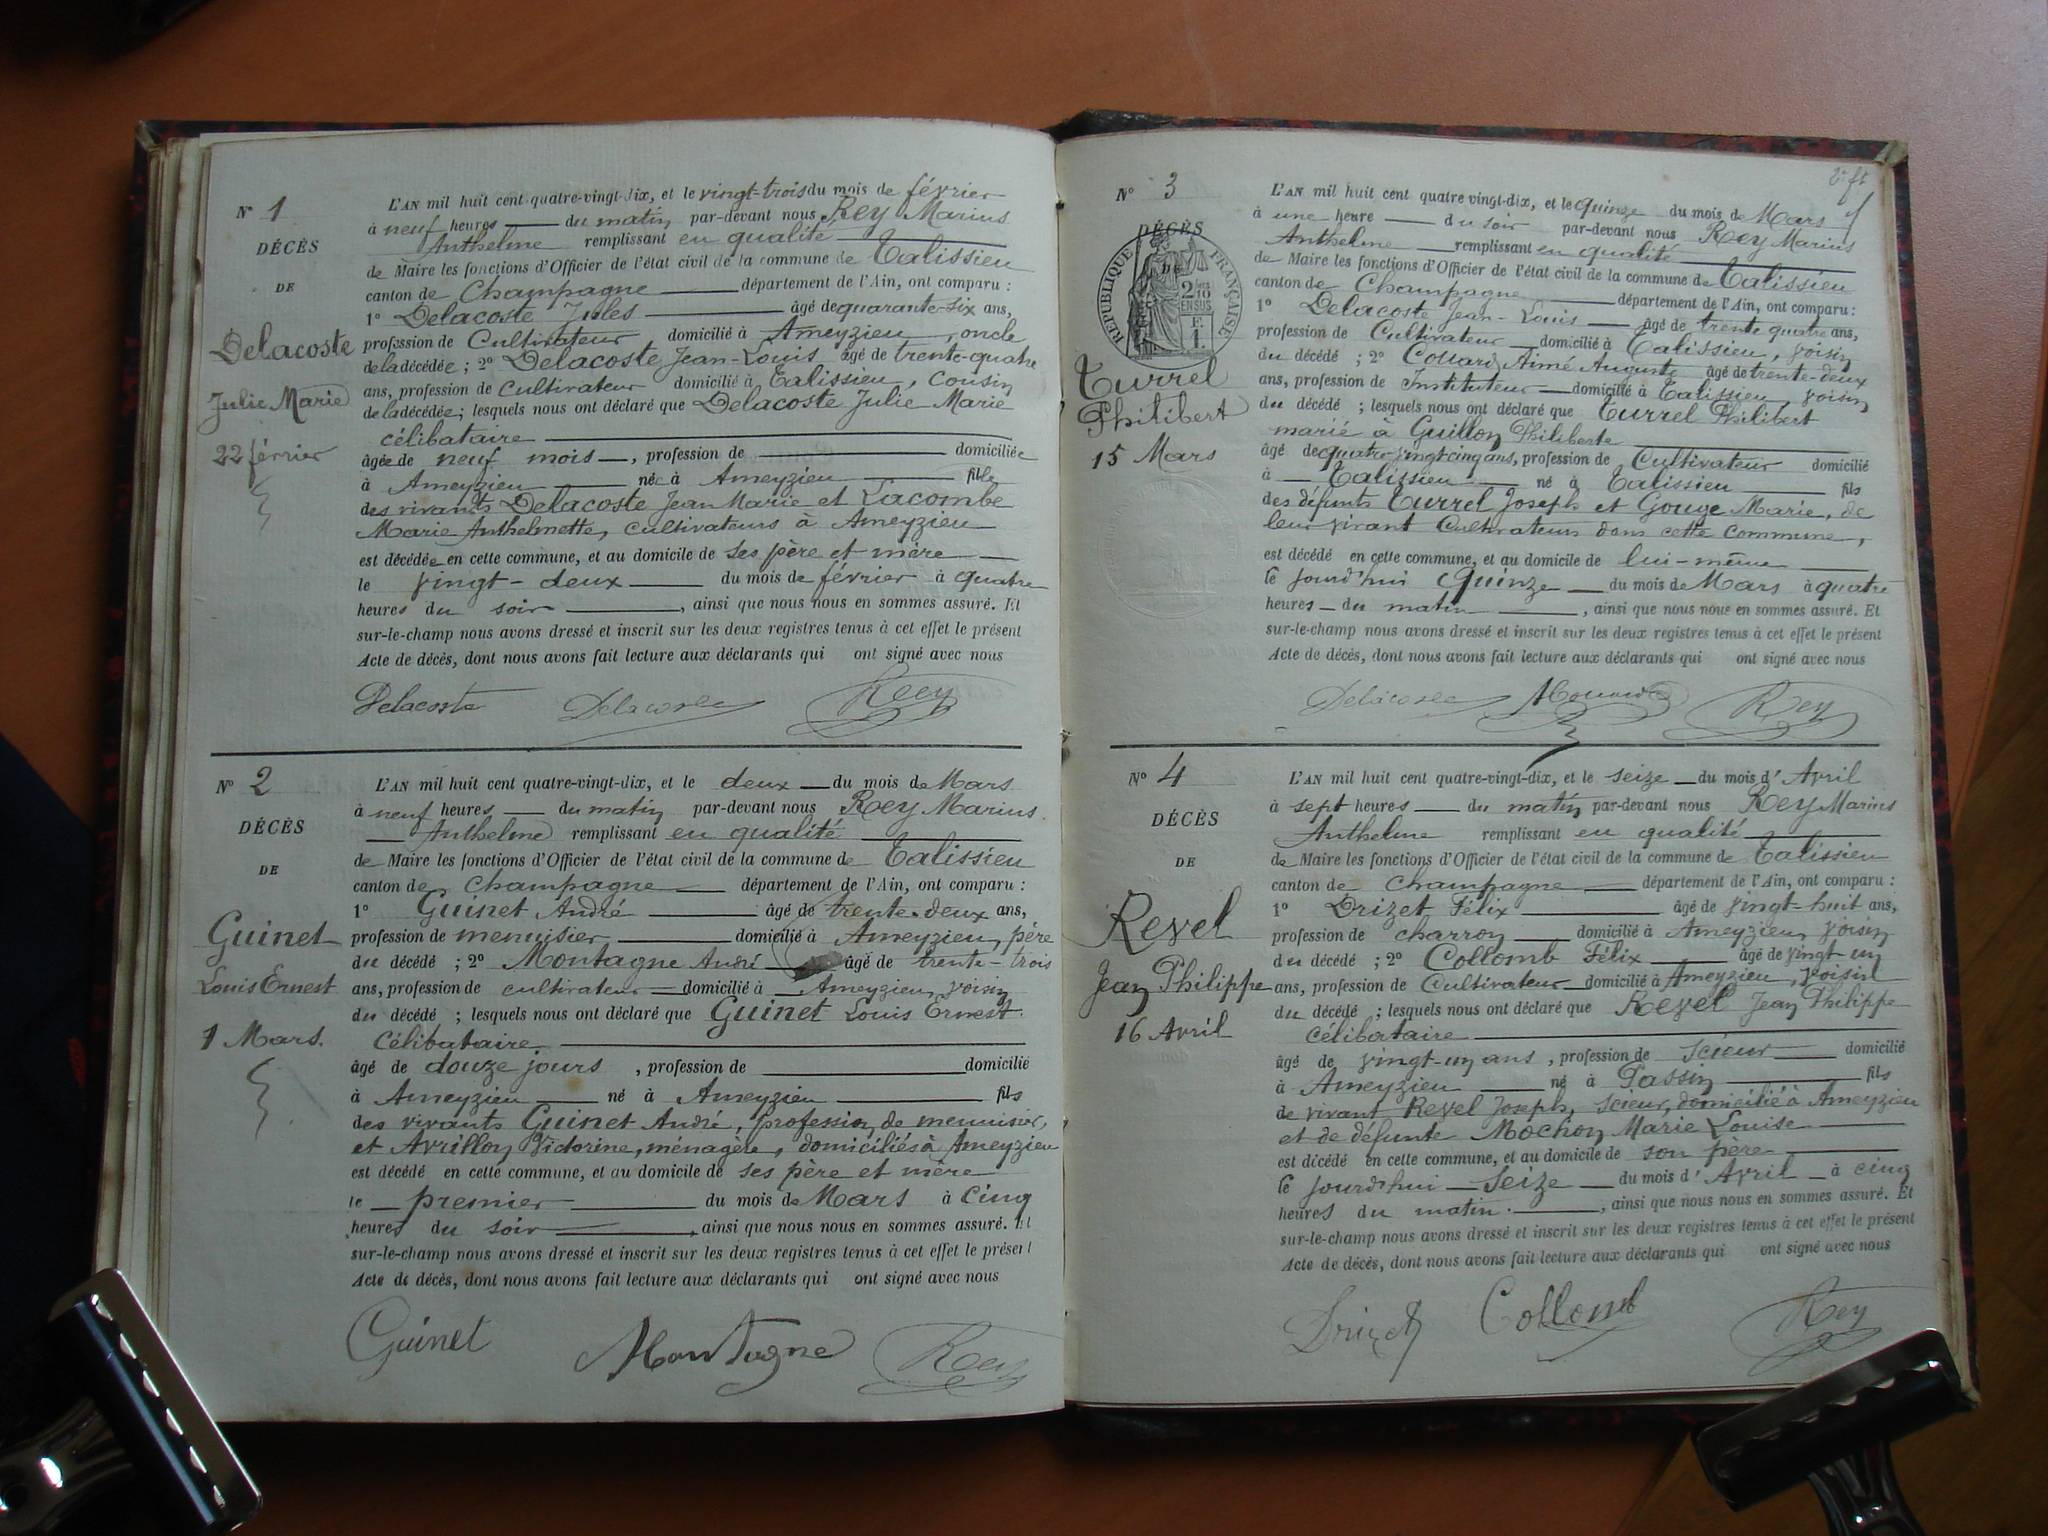 N° 1
DÉCÈS
DE
Delacoste
Julie Marie
22 février
L'AN mil huit cent quatre-vingt-dix, et le vingt-trois du mois de février
à neuf heures du matin par-devant nous Rey Marius
Anthelme remplissant en qualité
de Maire les fonctions d'Officier de l'état civil de la commune de Talissieu
canton de Champagne département de l'Ain, ont comparu :
1° Delacoste Jules âgé de quarante-six ans,
profession de Cultivateur domicilié à Ameyzieu, oncle
de la décédée ; 2° Delacoste Jean-Louis âgé de trente-quatre
ans, profession de cultivateur domicilié à Talissieu, cousin
de la décédée ; lesquels nous ont déclaré que Delacoste Julie Marie
célibataire
âgée de neuf mois, profession de domiciliée
à Ameyzieu née à Ameyzieu fille
des vivants Delacoste Jean Marie et Lacombe
Marie Anthelmette, cultivateurs à Ameyzieu
est décédée en cette commune, et au domicile de ses père et mère
le vingt-deux du mois de février à quatre
heures du soir, ainsi que nous nous en sommes assuré. Et
sur-le-champ nous avons dressé et inscrit sur les deux registres tenus à cet effet le présent
Acte de décès, dont nous avons fait lecture aux déclarants qui ont signé avec nous
Delacoste Delacoste Rey
N° 2
DÉCÈS
DE
Guinet
Louis Ernest
1 Mars.
L'AN mil huit cent quatre-vingt-dix, et le deux du mois de Mars
à neuf heures du matin par-devant nous Rey Marius
Anthelme remplissant en qualité
de Maire les fonctions d'Officier de l'état civil de la commune de Talissieu
canton de Champagne département de l'Ain, ont comparu :
1° Guinet André âgé de trente-deux ans,
profession de menuisier domicilié à Ameyzieu, père
du décédé ; 2° Montagne André âgé de trente-trois
ans, profession de cultivateur domicilié à Ameyzieu, voisin
du décédé ; lesquels nous ont déclaré que Guinet Louis Ernest.
Célibataire
âgé de douze jours, profession de domicilié
à Ameyzieu né à Ameyzieu fils
des vivants Guinet André, profession de menuisier,
et Avrillon Victorine, ménagère, domiciliés à Ameyzieu
est décédé en cette commune, et au domicile de ses père et mère
le premier du mois de Mars à cinq
heures du soir, ainsi que nous nous en sommes assuré. Et
sur-le-champ nous avons dressé et inscrit sur les deux registres tenus à cet effet le présent
Acte de décès, dont nous avons fait lecture aux déclarants qui ont signé avec nous
Guinet Montagne Rey
N° 3
DÉCÈS
RÉPUBLIQUE FRANÇAISE
2/10 EN SUS
F. 1.
Turrel
Philibert
15 Mars
L'AN mil huit cent quatre-vingt-dix, et le quinze du mois de Mars
à une heure du soir par-devant nous Rey Marius
Anthelme remplissant en qualité
de Maire les fonctions d'Officier de l'état civil de la commune de Talissieu
canton de Champagne département de l'Ain, ont comparu :
1° Delacoste Jean-Louis âgé de trente quatre ans,
profession de Cultivateur domicilié à Talissieu, voisin
du décédé ; 2° Aimé Auguste âgé de trente-deux
ans, profession de Instituteur domicilié à Talissieu, voisin
du décédé ; lesquels nous ont déclaré que Turrel Philibert
marié à Guillon Philiberte
âgé de quatre vingt cinq ans, profession de Cultivateur domicilié
à Talissieu né à Talissieu fils
des défunts Turrel Joseph et Gouge Marie, de
leur vivant Cultivateurs dans cette Commune,
est décédé en cette commune, et au domicile de lui-même
le jourd'hui quinze du mois de Mars à quatre
heures du matin, ainsi que nous nous en sommes assuré. Et
sur-le-champ nous avons dressé et inscrit sur les deux registres tenus à cet effet le présent
Acte de décès, dont nous avons fait lecture aux déclarants qui ont signé avec nous
Delacoste Rey
N° 4
DÉCÈS
DE
Revel
Jean Philippe
16 Avril
L'AN mil huit cent quatre-vingt-dix, et le seize du mois d'Avril
à sept heures du matin par-devant nous Rey Marius
Anthelme remplissant en qualité
de Maire les fonctions d'Officier de l'état civil de la commune de Talissieu
canton de Champagne département de l'Ain, ont comparu :
1° Drizet Félix âgé de vingt-huit ans,
profession de charron domicilié à Ameyzieu, voisin
du décédé ; 2° Collomb Félix âgé de vingt-un
ans, profession de Cultivateur domicilié à Ameyzieu, voisin
du décédé ; lesquels nous ont déclaré que Revel Jean Philippe
célibataire
âgé de vingt-un ans, profession de scieur domicilié
à Ameyzieu né à Passin fils
de vivant Revel Joseph, scieur, domicilié à Ameyzieu
et de défunte Mochon Marie Louise
est décédé en cette commune, et au domicile de son père
le jourd'hui seize du mois d'Avril à cinq
heures du matin., ainsi que nous nous en sommes assuré. Et
sur-le-champ nous avons dressé et inscrit sur les deux registres tenus à cet effet le présent
Acte de décès, dont nous avons fait lecture aux déclarants qui ont signé avec nous
Drizet Collomb Rey